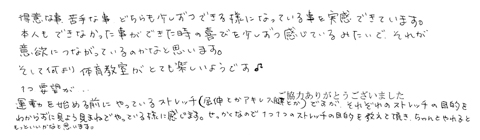 得意な事、苦手な事 どちらも少しずつできる様になっている事を実感できています。
本人もできなかった事ができた時の喜びを少しずつ感じているみたいで、それが
意欲につながっているのかなと思います。
そして何より体育教室がとても楽しいようです♪
1つ要望が…
ご協力ありがとうございました
運動を始める前にやっているストレッチ(屈伸とかアキレス腱とか)ですが、それぞれのストレッチの目的を
わからずに見よう見まねでやっている様に感じます。せっかくなので1つ1つのストレッチの目的を教えて頂き、ちゃんとやれると
もっといいかなと思います。